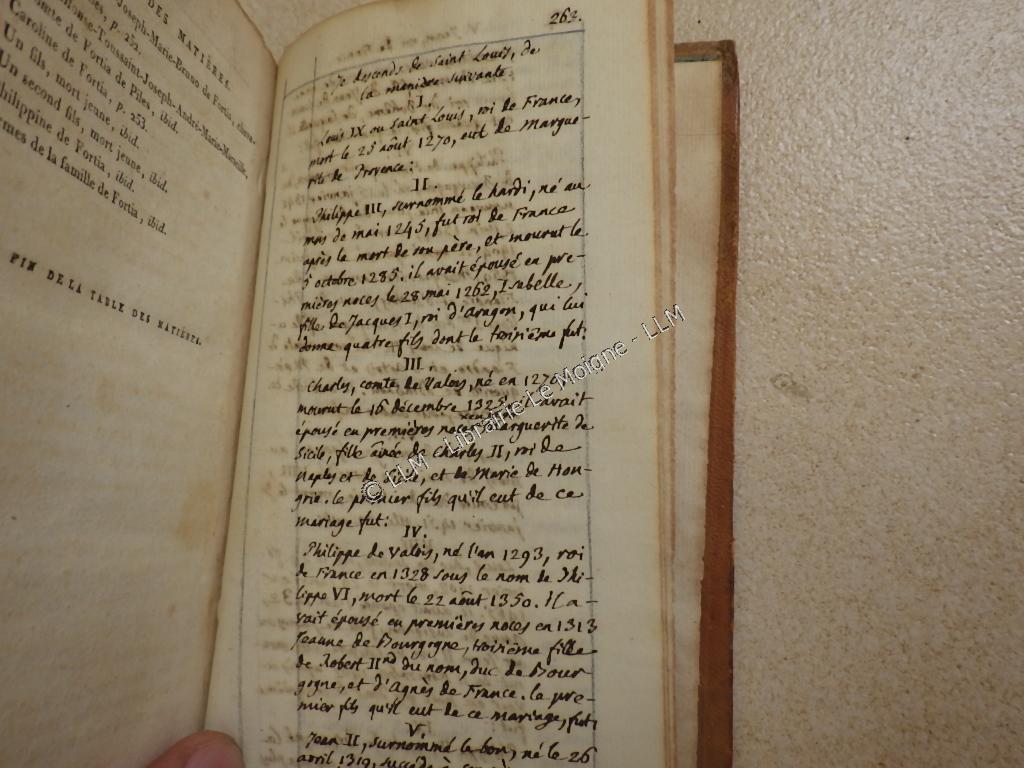 DES MATIÈRES.
p. 252.
Alphonse-Toussaint-Joseph-André-Marie-Marseille,
comte de Fortia de Piles, ibid.
Caroline de Fortia, p. 253.
Un fils, mort jeune, ibid.
Un second fils, mort jeune, ibid.
Philippine de Fortia, ibid.
de la famille de Fortia, ibid.
FIN DE LA TABLE DES MATIÈRES.
263.
Je descends de Saint Louis, de
la manière suivante
I.
Louis IX ou saint Louis, roi de France,
mort le 25 août 1270, eut de Margue-
rite de Provence:
II.
Philippe III, surnommé le hardi, né au
mois de mai 1245, fut roi de France
après la mort de son père, et mourut le
5 octobre 1285. il avait épousé en pre-
mières noces le 28 mai 1262, Isabelle,
fille de Jacques I, roi d'Aragon, qui lui
donna quatre fils dont le troisième fut:
III.
Charles, comte de Valois, né en 1270,
mourut le 16 décembre 1325. il avait
épousé en premières noces Marguerite de
Sicile, fille ainée de Charles II, roi de
Naples et de Sicile, et de Marie de Hon-
grie. le premier fils qu'il eut de ce
mariage fut:
IV.
Philippe de Valois, né l'an 1293, roi
de France en 1328 sous le nom de Phi-
lippe VI, mort le 22 août 1350. Il a-
vait épousé en premières noces en 1313
Jeanne de Bourgogne, troisième fille
de Robert IInd du nom, duc de Bour
gogne, et d'Agnès de France. le pre-
mier fils qu'il eut de ce mariage, fut:
V.
Jean II, surnommé le bon, né le 26
avril 1319, succéda à
© LLM - Librairie Le Moigne - LLM